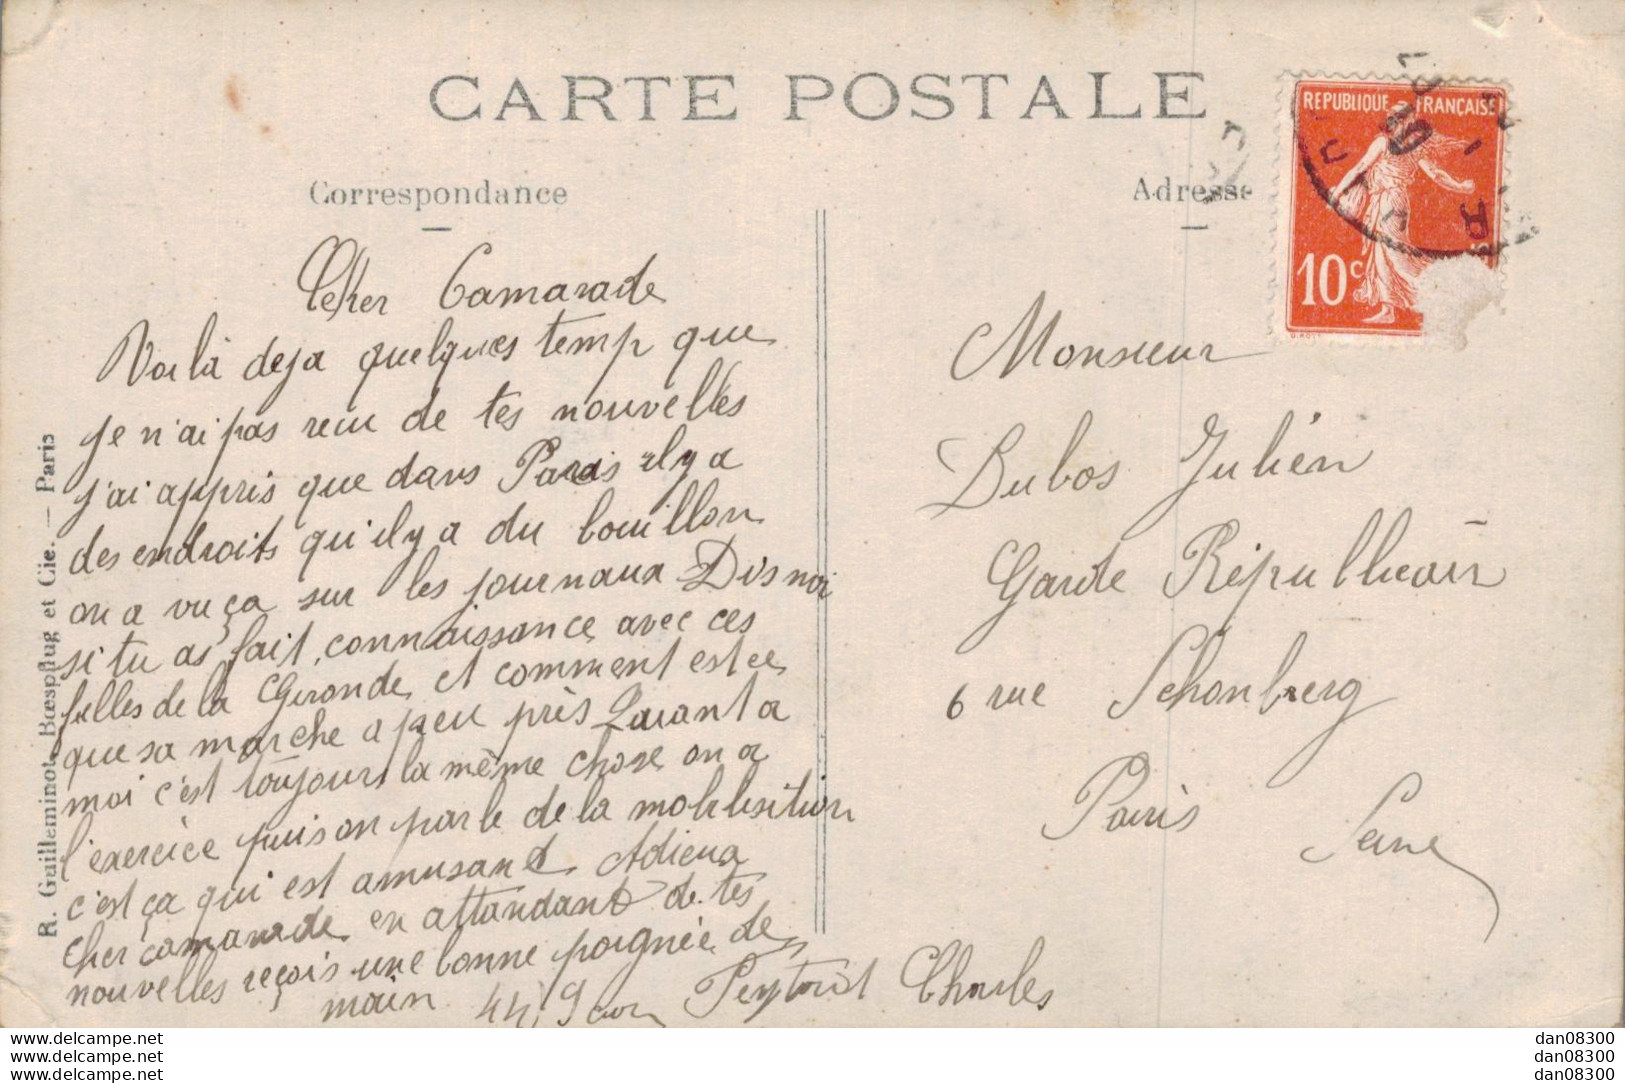 CARTE POSTALE
Correspondance
Adresse
REPUBLIQUE FRANÇAISE
10c
Cher Camarade
Voilà deja quelques temp que
je n'ai pas recu de tes nouvelles
j'ai appris que dans Paris il y a
des endroits qu'il y a du bouillon
on a vu ça sur les journaux Dis moi
si tu as fait connaissance avec ces
filles de la Gironde et comment est ce
que sa marche a peu près Quant a
moi c'est toujours la même chose on a
l'exercice puis on parle de la mobilisition
c'est ça qui est amusant Adieux
cher camarade en attandant de tes
nouvelles reçois une bonne poignée de
main
Charles
Monsieur
Dubos Julién
Garde Républicain
6 rue Schonberg
Paris Seine
R. Guilleminot, Bœspflug et Cie. — Paris
www.delcampe.net
www.delcampe.net
www.delcampe.net
dan08300
dan08300
dan08300